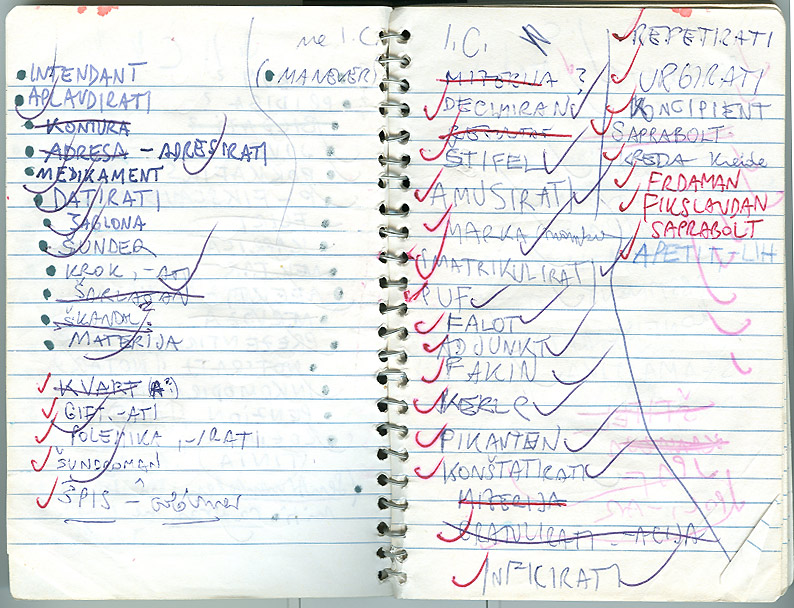 ne I.C.
(MANEVER)
INTENDANT
APLAVDIRATI
KONTURA
ADRESA - ADRESIRATI
MEDIKAMENT
DATIRATI
ŠABLONA
ŠUNDER
KROK, -ATI
ŠARLATAN
ŠKANDL
MATERIJA
KVART (A?)
GIFT, -ATI
POLEMIKA, -IRATI
ŠUNDROMAN
ŠPIS -
I.C.
MIZERIJA ?
DECMIRAN
ŠTIFEL
AMUSIRATI
MARKA
SMATRIKULIRATI
PUF
FALOT
ADJUNKT
FAKIN
KERLC
PIKANTEN
KONŠTATIRATI
MIZERIJA
GRATULIRATI -ACIJA
INFICIRATI
REPETIRATI
URGIRATI
KONCIPIENT
SAPRABOLT
KREDA Kreide
FRDAMAN
FIKSLAUDAN
SAPRABOLT
APETIT-LIH